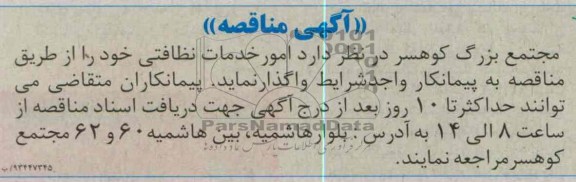 «آگهی مناقصه»
مجتمع بزرگ کوهسر در نظر دارد امور خدمات نظافتی خود را از طریق
مناقصه به پیمانکار واجد شرایط واگذار نماید. پیمانکاران متقاضی می
توانند حداکثر تا ۱۰ روز بعد از درج آگهی جهت دریافت اسناد مناقصه از
ساعت ۸ الی ۱۴ به آدرس: بلوار هاشمیه، بین هاشمیه ۶۰ و ۶۲ مجتمع
کوهسر مراجعه نمایند.
۹۳۴۴۷۳۴۵/ب
ParsNamadData